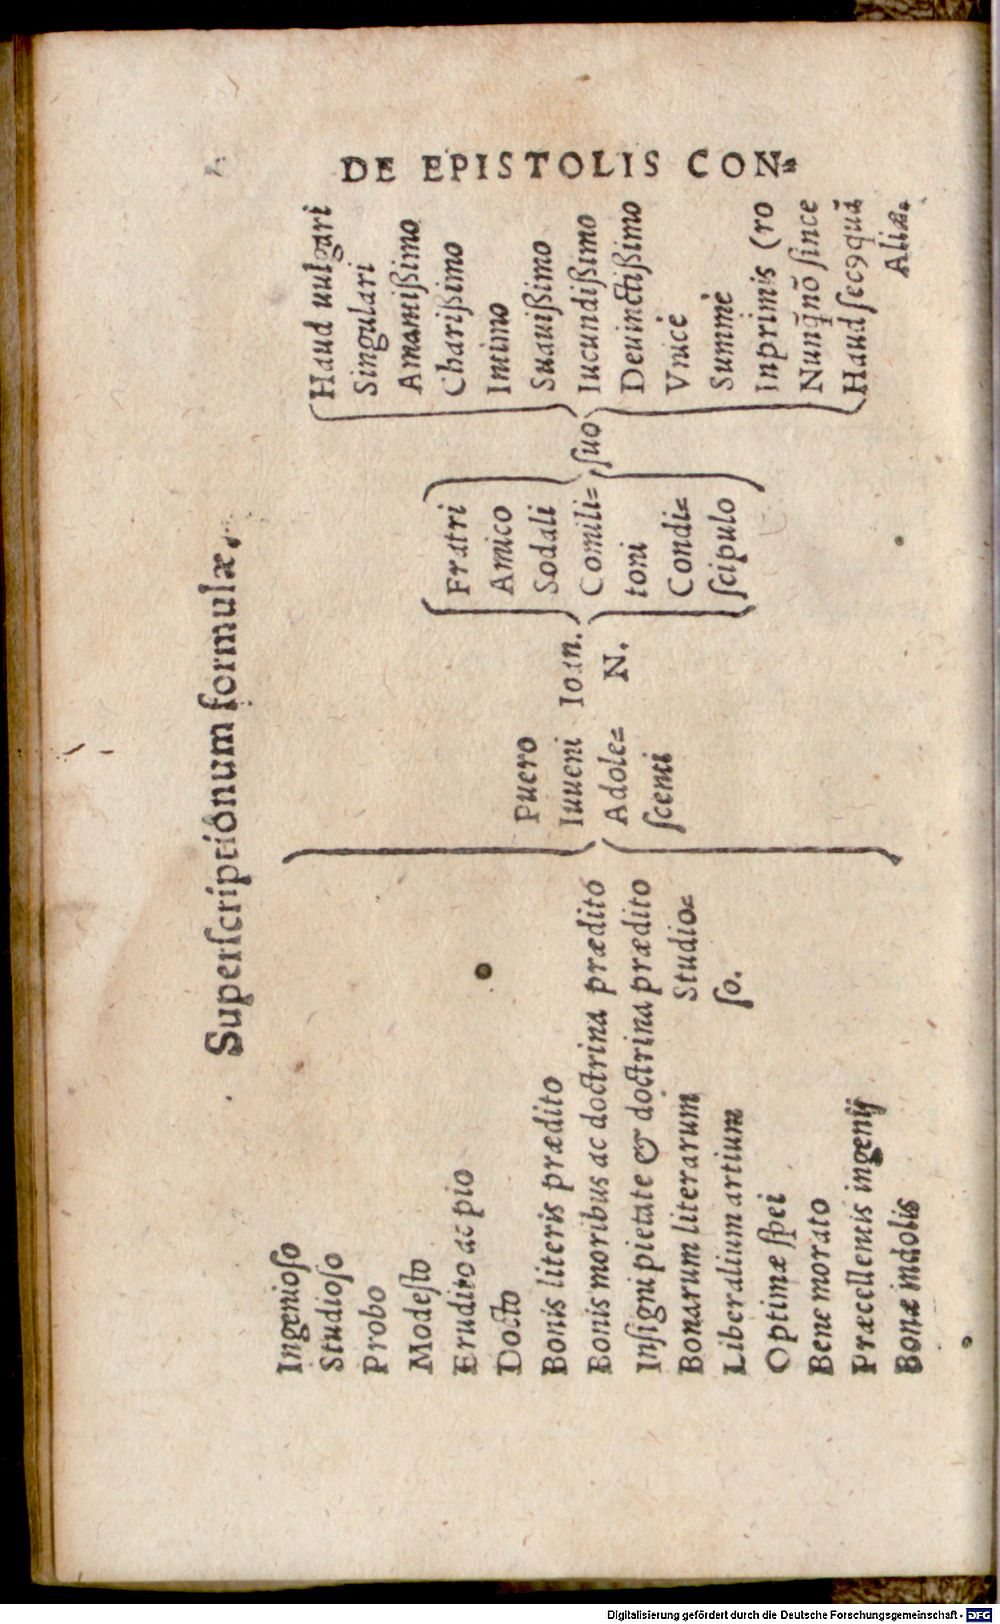 DE EPISTOLIS CON⸗
Superſcriptionum formulæ.
Ingenioſo
Studioſo
Probo
Modeſto
Erudito ac pio
Docto
Bonis literis prædito
Bonis moribus ac doctrina prædito
Inſigni pietate & doctrina prædito
Bonarum literarum
Liberalium artium
Studio⸗
ſo.
Optimæ ſpei
Bene morato
Præcellentis ingenij
Bonæ indolis
Puero
Iuueni
Adole⸗
ſcenti
Ioan.
N.
Fratri
Amico
Sodali
Comili⸗
toni
Condi⸗
ſcipulo
ſuo
Haud uulgari
Singulari
Amantißimo
Charißimo
Intimo
Suauißimo
Iucundißimo
Deuinctißimo
Vnicè
Summè
Inprimis (ro
Nunq̃nõ ſince
Haud ſecꝯquã
Aliæ.
Digitalisierung gefördert durch die Deutsche Forschungsgemeinschaft - DFG